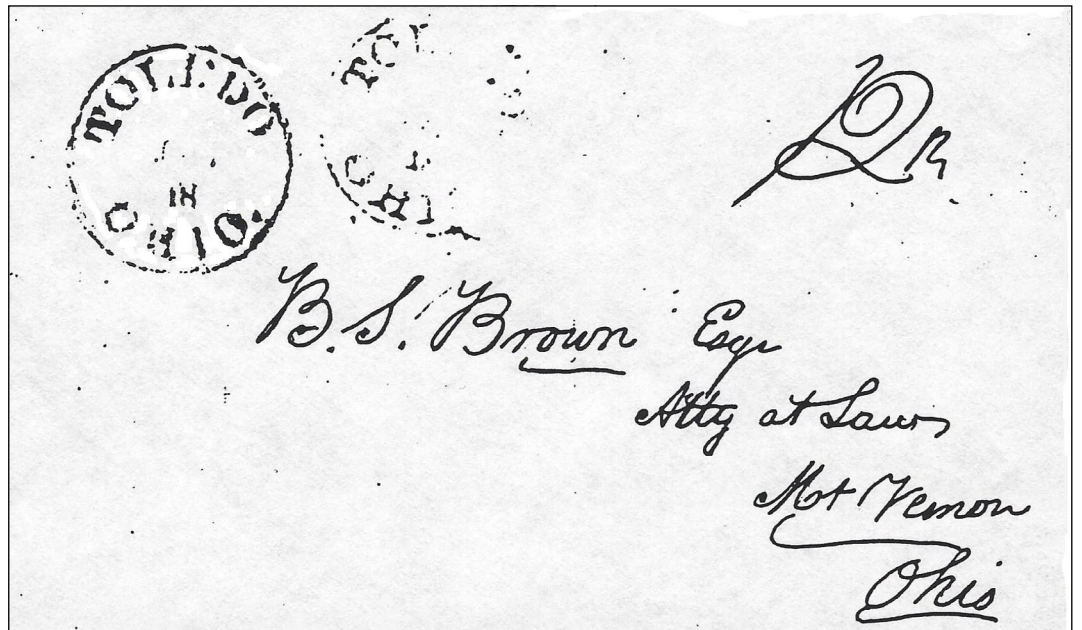 TOLEDO
18
OHIO.
TO
OHI
B. S. Brown Esqr
Atty at Law
Mt Vernon
Ohio